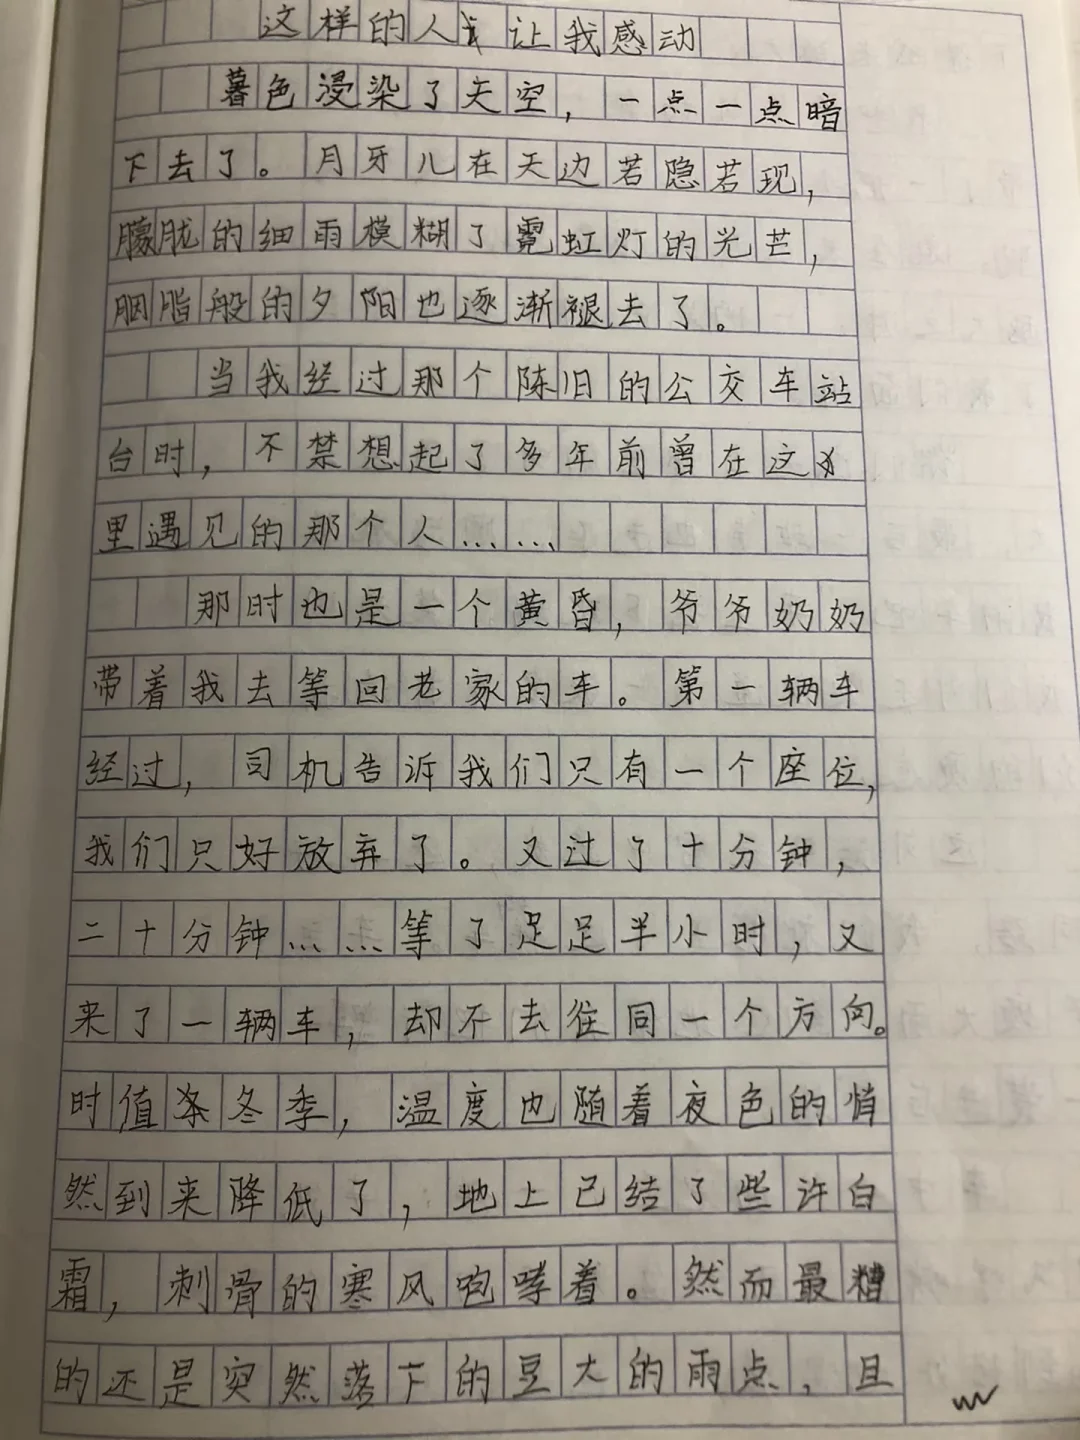 这样的人让我感动
暮色浸染了天空，一点一点暗
下去了。月牙儿在天边若隐若现，
朦胧的细雨模糊了霓虹灯的光芒，
胭脂般的夕阳也逐渐褪去了。
当我经过那个陈旧的公交车站
台时，不禁想起了多年前曾在这
里遇见的那个人……
那时也是一个黄昏，爷爷奶奶
带着我去等回老家的车。第一辆车
经过，司机告诉我们只有一个座位，
我们只好放弃了。又过了十分钟，
二十分钟……等了足足半小时，又
来了一辆车，却不去往同一个方向。
时值冬季，温度也随着夜色的悄
然到来降低了，地上已结了些许白
霜，刺骨的寒风咆哮着。然而最糟
的还是突然落下的豆大的雨点，且